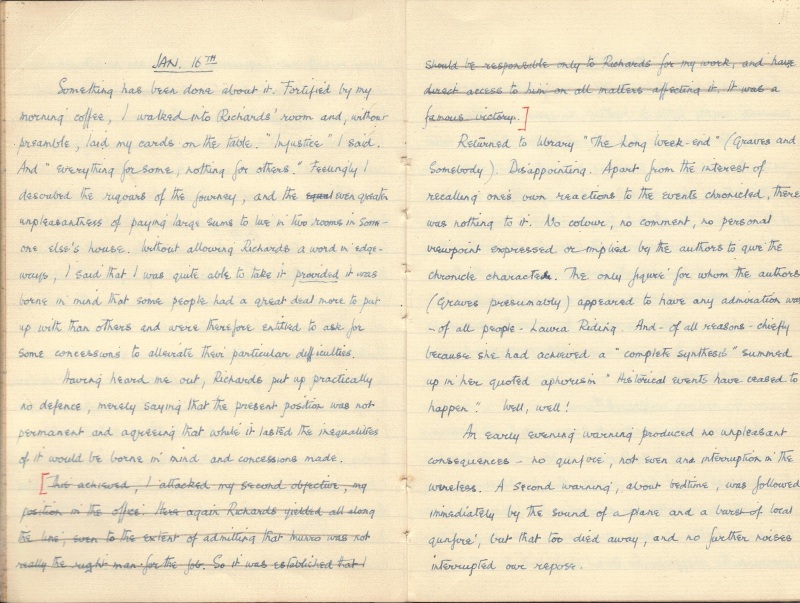 JAN. 16TH
Something has been done about it. Fortified by my
morning coffee, I walked into Richards' room and, without
preamble, laid my cards on the table. "Injustice" I said.
And "everything for some, nothing for others." Feelingly I
described the rigours of the journey, and the equal even greater
unpleasantness of paying large sums to live in two rooms in some-
one else's house. Without allowing Richards a word in edge-
ways, I said that I was quite able to take it provided it was
borne in mind that some people had a great deal more to put
up with than others and were therefore entitled to ask for
some concessions to alleviate their particular difficulties.
Having heard me out, Richards put up practically
no defence, merely saying that the present position was not
permanent and agreeing that while it lasted the inequalities
of it would be borne in mind and concessions made.
[This achieved, I attacked my second objective, my
position in the office. Here again Richards yielded all along
the line, even to the extent of admitting that Munro was not
really the right man for the job. So it was established that I
should be responsible only to Richards for my work, and have
direct access to him on all matters affecting it. It was a
famous victory.]
Returned to library "The Long Week-end" (Graves and
Somebody). Disappointing. Apart from the interest of
recalling one's own reactions to the events chronicled, there
was nothing to it. No colour, no comment, no personal
viewpoint expressed or implied by the authors to give the
chronicle character. The only figure for whom the authors
(Graves presumably) appeared to have any admiration was
- of all people - Laura Riding. And - of all reasons - chiefly
because she had achieved a "complete synthesis" summed
up in her quoted aphorism "Historical events have ceased to
happen". Well, well!
An early evening warning produced no unpleasant
consequences - no gunfire, not even an interruption in the
wireless. A second warning, about bedtime, was followed
immediately by the sound of a plane and a burst of local
gunfire, but that too died away, and no further noises
interrupted our repose.